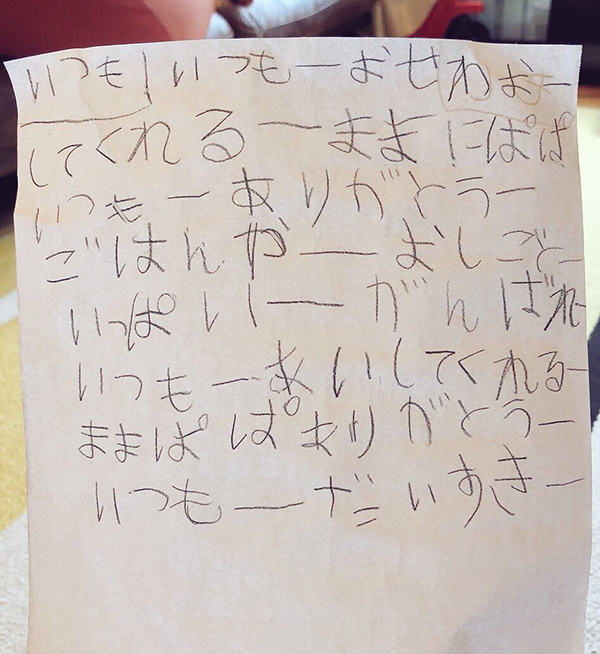 いつも！いつもーおせわおー
してくれるーままにぱぱ
いつもーありがとうー
ごはんやーーおしごとー
いっぱいーーがんばれー
いつもーあいしてくれるー
ままぱぱありがとうー
いつもーーだいすきー